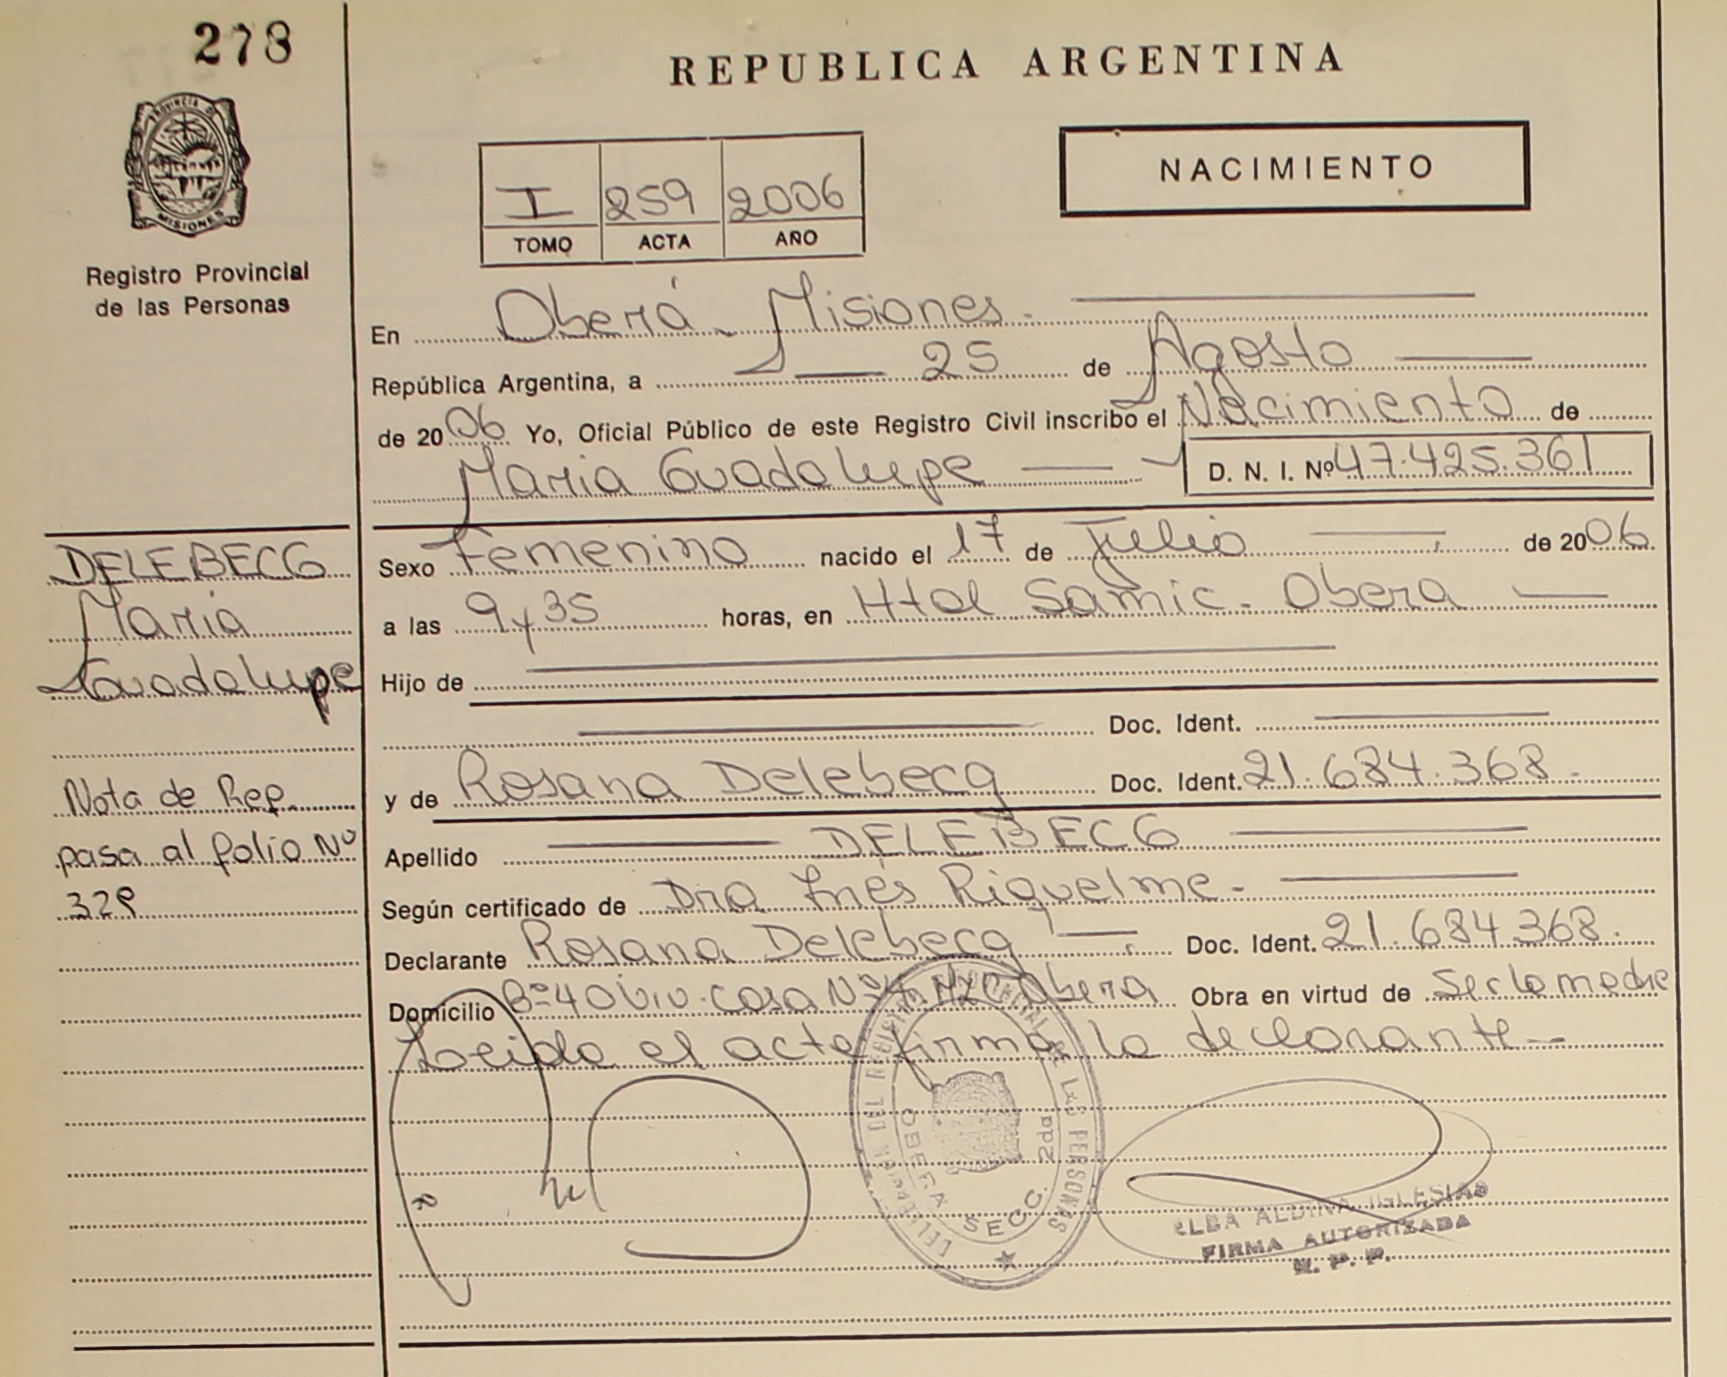 278
REPUBLICA ARGENTINA
PROVINCIA DE
MISIONES
Registro Provincial
de las Personas
I 259 2006
TOMO ACTA AÑO
NACIMIENTO
En Oberá - Misiones.
República Argentina, a 25 de Agosto
de 2006 Yo, Oficial Público de este Registro Civil inscribo el Nacimiento de
Maria Guadalupe D. N. I. Nº 47.425.361
DELEBECQ
Maria
Guadalupe
Sexo Femenino nacido el 17 de Julio de 2006
a las 9 y 35 horas, en Htal Samic. Obera
Hijo de
Doc. Ident.
Nota de Rep.
pasa al folio Nº
329
y de Rosana Delebecq Doc. Ident. 21.684.368.
Apellido DELEBECQ
Según certificado de Dra Ines Riquelme.
Declarante Rosana Delebecq Doc. Ident. 21.684.368.
Domicilio Bº 40 viv. casa Nº 4 Mz C Obera Obra en virtud de Ser la madre
Leida el acta firma la declarante
DELEGACION DEL REGISTRO PROVINCIAL DE LAS PERSONAS
OBERA SECC. 2da
ELBA ALDINA IGLESIAS
FIRMA AUTORIZADA
R. P. P.